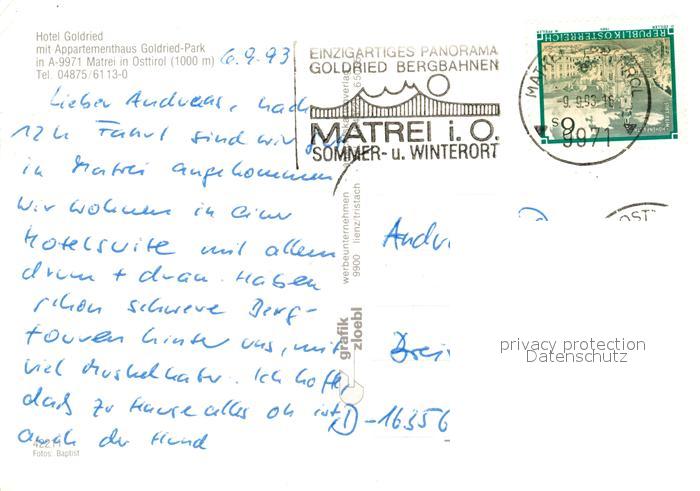 Hotel Goldried
mit Appartementhaus Goldried-Park
in A-9971 Matrei in Osttirol (1000 m)
Tel. 04875/6113-0
6.9.93
Lieber Andreas, nach
12 h Fahrt sind wir gut
in Matrei angekommen
wir wohnen in einer
Hotelsuite mit allem
drum + dran. Haben
schon schwere Berg-
touren hinter uns, mit
viel Muskelkater. Ich hoffe,
daß zu Hause alles ok ist,
auch der Hund
Fotos: Baptist
EINZIGARTIGES PANORAMA
GOLDRIED BERGBAHNEN
MATREI i. O.
SOMMER- u. WINTERORT
REPUBLIK ÖSTERREICH
S 6
9971
werbeunternehmen
9900 lienz/tristach
grafik
zloebl
Andr
Drei
D-16356
OST
privacy protection
Datenschutz